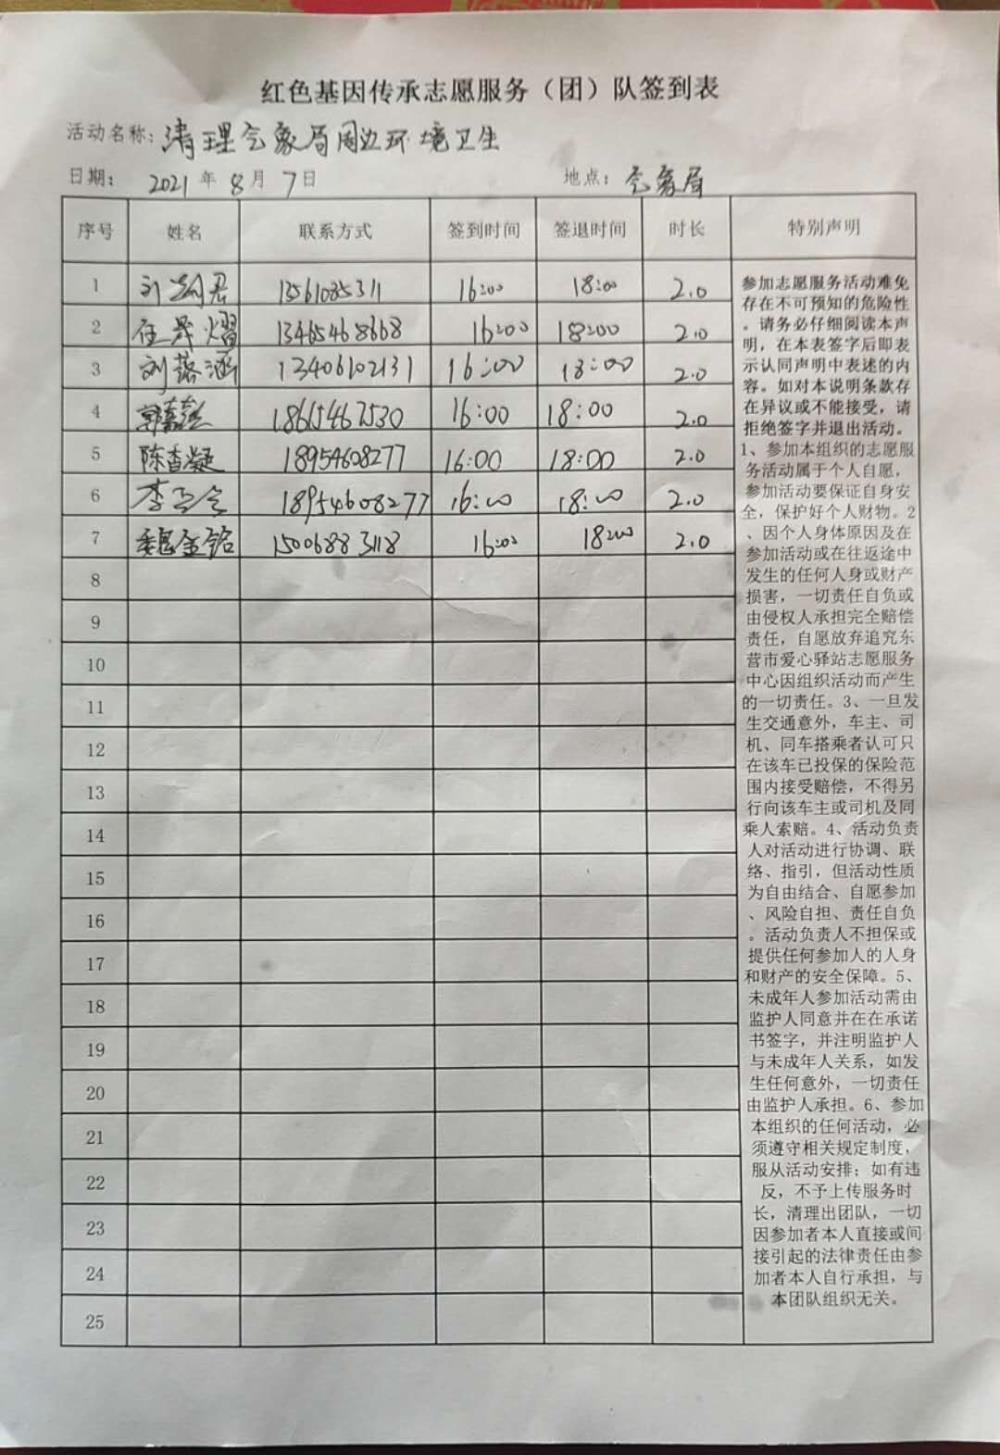 红色基因传承志愿服务（团）队签到表
活动名称：清理气象局周边环境卫生
日期： 2021 年 8 月 7 日 地点：气象局
序号 姓名 联系方式 签到时间 签退时间 时长 特别声明
1 刘 君 1561085311 16:00 18:00 2.0
2 任昇熠 13465468668 16:00 18:00 2.0
3 刘蕗涵 13406102131 16:00 18:00 2.0
4 郭 18615467530 16:00 18:00 2.0
5 陈杳凝 18954608277 16:00 18:00 2.0
6 李 18954608277 16:00 18:00 2.0
7 魏金铭 15006883118 16:00 18:00 2.0
8
9
10
11
12
13
14
15
16
17
18
19
20
21
22
23
24
25
参加志愿服务活动难免
存在不可预知的危险性
。请务必仔细阅读本声
明，在本表签字后即表
示认同声明中表述的内
容。如对本说明条款存
在异议或不能接受，请
拒绝签字并退出活动。
1、参加本组织的志愿服
务活动属于个人自愿，
参加活动要保证自身安
全，保护好个人财物。2
、因个人身体原因及在
参加活动或在往返途中
发生的任何人身或财产
损害，一切责任自负或
由侵权人承担完全赔偿
责任，自愿放弃追究东
营市爱心驿站志愿服务
中心因组织活动而产生
的一切责任。3、一旦发
生交通意外，车主、司
机、同车搭乘者认可只
在该车已投保的保险范
围内接受赔偿，不得另
行向该车主或司机及同
乘人索赔。4、活动负责
人对活动进行协调、联
络、指引，但活动性质
为自由结合、自愿参加
、风险自担、责任自负
。活动负责人不担保或
提供任何参加人的人身
和财产的安全保障。5、
未成年人参加活动需由
监护人同意并在在承诺
书签字，并注明监护人
与未成年人关系，如发
生任何意外，一切责任
由监护人承担。6、参加
本组织的任何活动，必
须遵守相关规定制度，
服从活动安排；如有违
反，不予上传服务时
长，清理出团队，一切
因参加者本人直接或间
接引起的法律责任由参
加者本人自行承担，与
本团队组织无关。